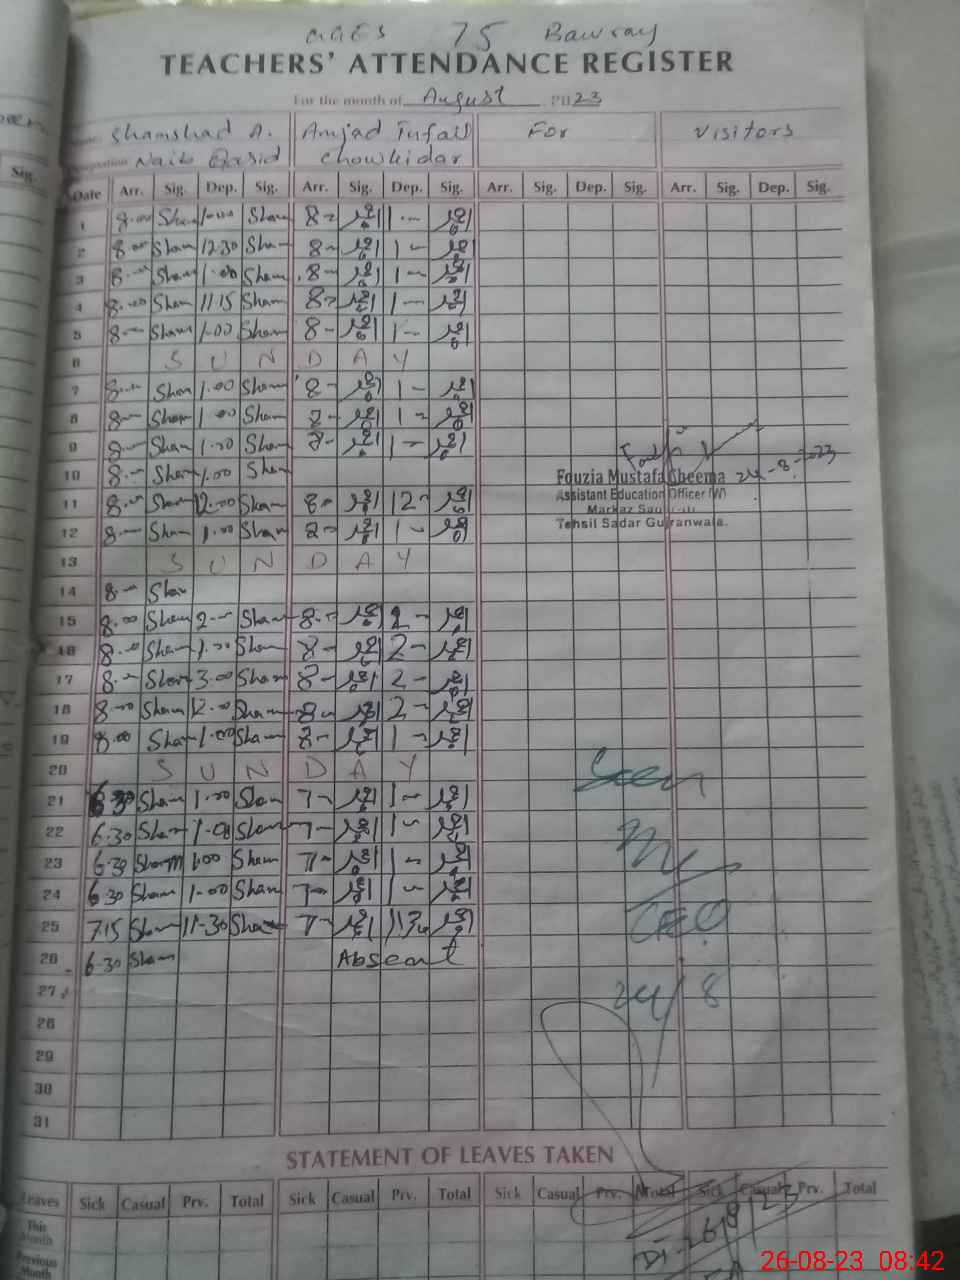 GGES 75 Bawray
TEACHERS' ATTENDANCE REGISTER
For the month of August 2023
Name Shamshad A. Amjad Tufail For Visitors
Designation Naib Qasid Chowkidar
Sig.
Date Arr. Sig. Dep. Sig. Arr. Sig. Dep. Sig. Arr. Sig. Dep. Sig. Arr. Sig. Dep. Sig.
1 8.00 Sham 1.00 Sham 8- 1-
2 8.00 Sham 12.30 Sham 8- 1-
3 8.- Sham 1.00 Sham 8- 1-
4 8.00 Sham 11.15 Sham 8- 1-
5 8.- Sham 1.00 Sham 8- 1-
6 S U N D A Y
7 8.- Sham 1.00 Sham 8- 1-
8 8.- Sham 1.00 Sham 8- 1-
9 8.- Sham 1.00 Sham 8- 1-
10 8.- Sham 1.00 Sham
Fouzia Mustafa Cheema 24-8-2023
11 8.- Sham 12.00 Sham 8- 12-
Assistant Education Officer (W)
Markaz
12 8.- Sham 1.00 Sham 8- 1-
Tehsil Sadar Gujranwala.
13 S U N D A Y
14 8.- Sham
15 8.00 Sham 2.- Sham 8- 2-
16 8.- Sham 1.00 Sham 8- 2-
17 8.- Sham 3.00 Sham 8- 2-
18 8.00 Sham 12.00 Sham 8- 2-
19 8.00 Sham 1.00 Sham 8- 1-
20 S U N D A Y
Seen
21 6.30 Sham 1.00 Sham 7- 1-
22 6.30 Sham 1.00 Sham 7- 1-
23 6.30 Sham 1.00 Sham 7- 1-
24 6.30 Sham 1.00 Sham 7- 1-
25 7.15 Sham 11.30 Sham 7- 113
CEO
26 6.30 Sham Absent
27
24/8
28
29
30
31
STATEMENT OF LEAVES TAKEN
Leaves Sick Casual Prv. Total Sick Casual Prv. Total Sick Casual Prv. Total Sick Casual Prv. Total
This
Month
Previous
Month
Dt-26/8/23
26-08-23 08:42